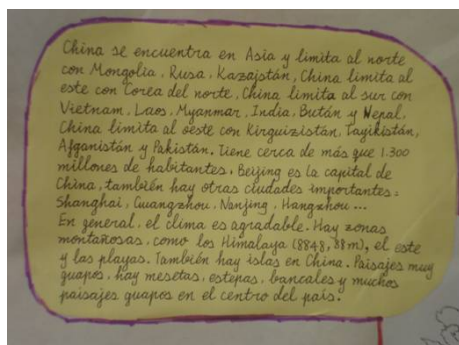 China se encuentra en Asia y limita al norte
con Mongolia, Rusa, Kazajstán, China limita al
este con Corea del norte, China limita al sur con
Vietnam, Laos, Myanmar, India, Bután y Nepal,
China limita al oeste con Kirguizistán, Tayikistán,
Afganistán y Pakistán. Tiene cerca de más que 1.300
millones de habitantes. Beijing es la capital de
China, también hay otras ciudades importantes:
Shanghai, Guangzhou, Nanjing, Hangzhou...
En general, el clima es agradable. Hay zonas
montañosas, como los Himalaya (8848,88m), el este
y las playas. También hay islas en China. Paisajes muy
guapos, hay mesetas, estepas, bancales y muchos
paisajes guapos en el centro del país.